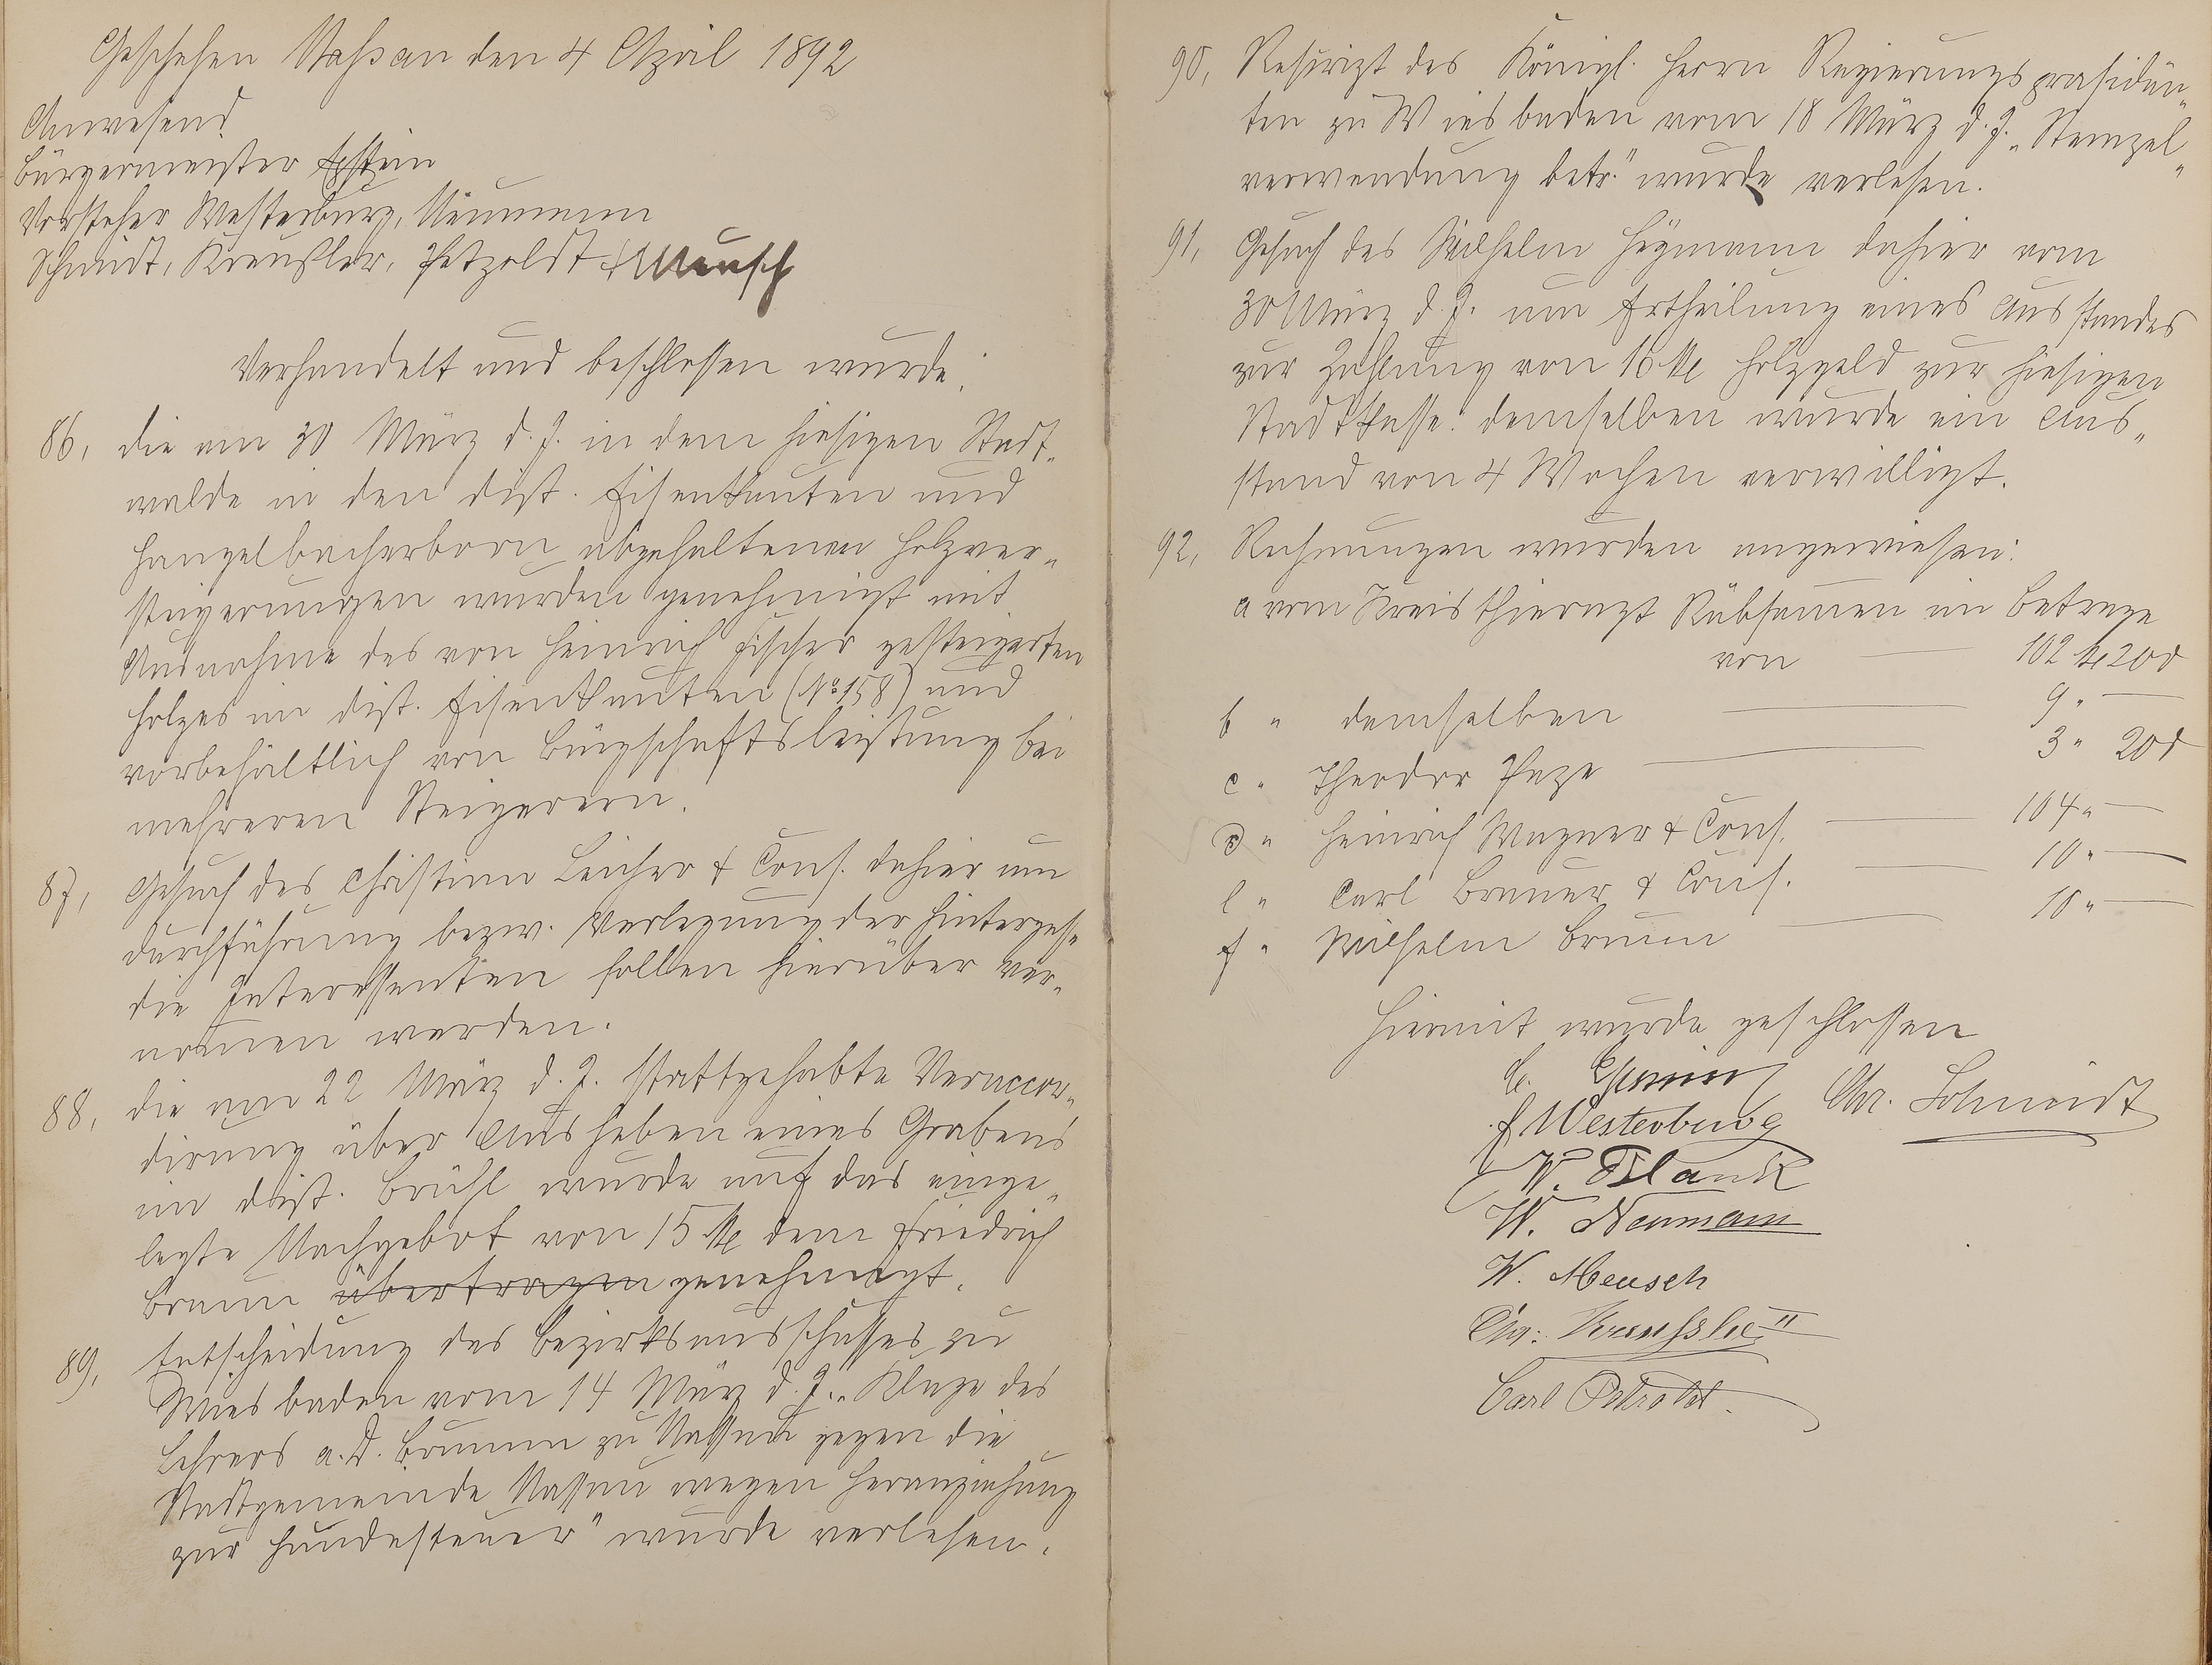 Geschehen Nassau den 4 April 1892
Anwesend
Bürgermeister Epstein
Vorsteher Westerburg, Neumann
Schmidt, Kreußler, Petzoldt + Meusch
Verhandelt und beschlossen wurde:
86, die am 30 März d. J. in dem hiesigen Stadt„
walde in den Dist. Eisenkauten und
Hanzelbacherborn abgehaltenen Holzver„
steigerungen wurden genehmigt mit
Ausnahme des von Heinrich Fischer gesteigerten
Holzes im Dist. Eisenkauten (No 158) und
vorbehältlich von Bürgschaftsleistung bei
mehreren Steigerern.
87, Gesuch des Christian Leicher & Cons. dahier um
Durchführung bezw. Verlegung der Hintergasse
die Interessenten sollen hierüber ver„
nommen werden.
88, die am 22 März d. J. stattgehabte Veraccor„
dirung über Ausheben eines Grabens
im Dist. Brühl wurde auf das einge„
legte Nachgebot von 15 M dem Friedrich
Braun übertragen genehmigt.
89, Entscheidung des Bezirksausschusses zu
Wiesbaden vom 14 März d. J. „Klage des
Lehrers a. D. Brumm zu Nassau gegen die
Stadtgemeinde Nassau wegen Heranziehung
zur Hundesteuer" wurde verlesen.
90, Rescript des Königl. Herrn Regierungspräsiden„
ten zu Wiesbaden vom 18 März d. J. „Stempel„
verwendung betr." wurde verlesen.
91, Gesuch des Wilhelm Heymann dahier vom
30 März d. J. um Ertheilung eines Ausstandes
zur Zahlung von 16 M Holzgeld zur hiesigen
Stadtkasse: demselben wurde ein Aus„
stand von 4 Wochen verwilligt.
92, Rechnungen wurden angewiesen:
a vom Kreisthierarzt Rübsamen im Betrage
von — 102 M 20 d
b " demselben — 9 " —
c " Theodor Page — 3 " 20 d
d " Heinrich Wagner & Cons. — 104 " —
e " Carl Bremer & Cons. — 10 " —
f " Wilhelm Braun — 10 " —
Hiermit wurde geschlossen
Epstein
Chr. Schmidt
F Westerburg
W. Blank
W. Neumann
W. Meusch
Chr: Kreussler II
Carl Petzoldt.